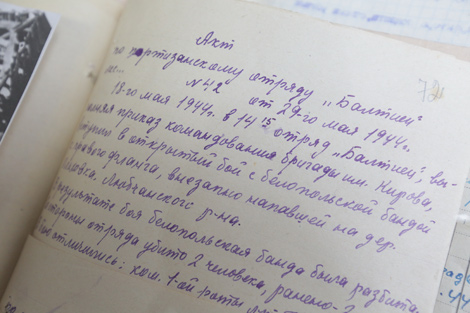 Акт
по партизанскому отряду "Балтиец"
№ 42 от 29-го мая 1944г. 72
18-го мая 1944г. в 14 15 отряд "Балтиец", вы-
приказ командования бригады им. Кирова,
в открытый бой с белопольской бандой
фланга, внезапно напавшей на дер.
Любчанского р-на.
результате боя белопольская банда была разбита.
стороны отряда убито 2 человека, ранено-
отличились: ком. 1-ой роты